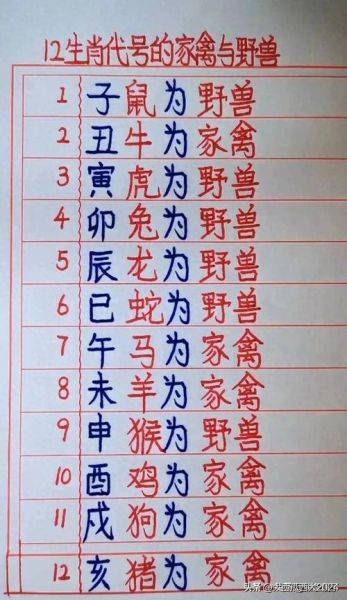 12生肖代号的家禽与野兽
1 子鼠为野兽
2 丑牛为家禽
3 寅虎为野兽
4 卯兔为野兽
5 辰龙为野兽
6 巳蛇为野兽
7 午马为家禽
8 未羊为家禽
9 申猴为野兽
10 酉鸡为家禽
11 戌狗为家禽
12 亥猪为家禽